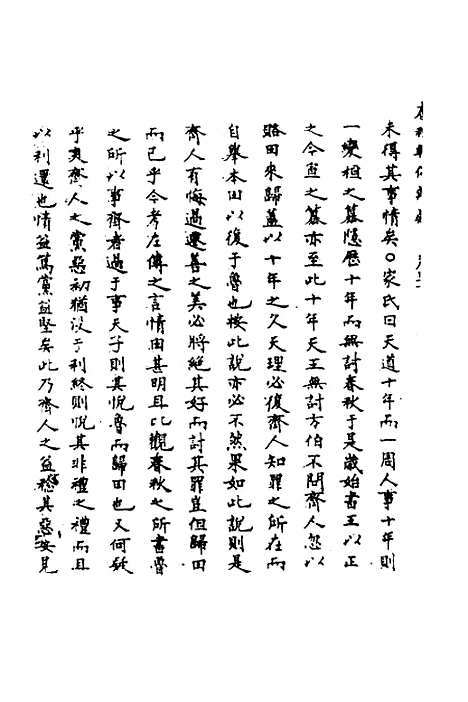 未得其事情矣〇家氏曰天道十年而一周人事十年則
一變桓之簒隱歷十年而無討春秋于是歲始書王以正
之今宣之簒亦至此十年天王無討方伯不問齊人忽以
賂田來歸蓋以十年之久天理必復齊人知罪之所在而
自舉本田以復于魯也按此說亦必不然果如此說則是
齊人有悔過遷善之美必將絕其好而討其罪豈但歸田
而已乎今考左傳之言情由甚明且比觀春秋之所書魯
之所以事齊者過于事天子則其悅魯而歸田也又何疑
乎夫齊人之黨惡初猶汲于利終則悅其非禮之禮而且
以利還也情益篤黨益堅矣此乃齊人之益稔其惡安見